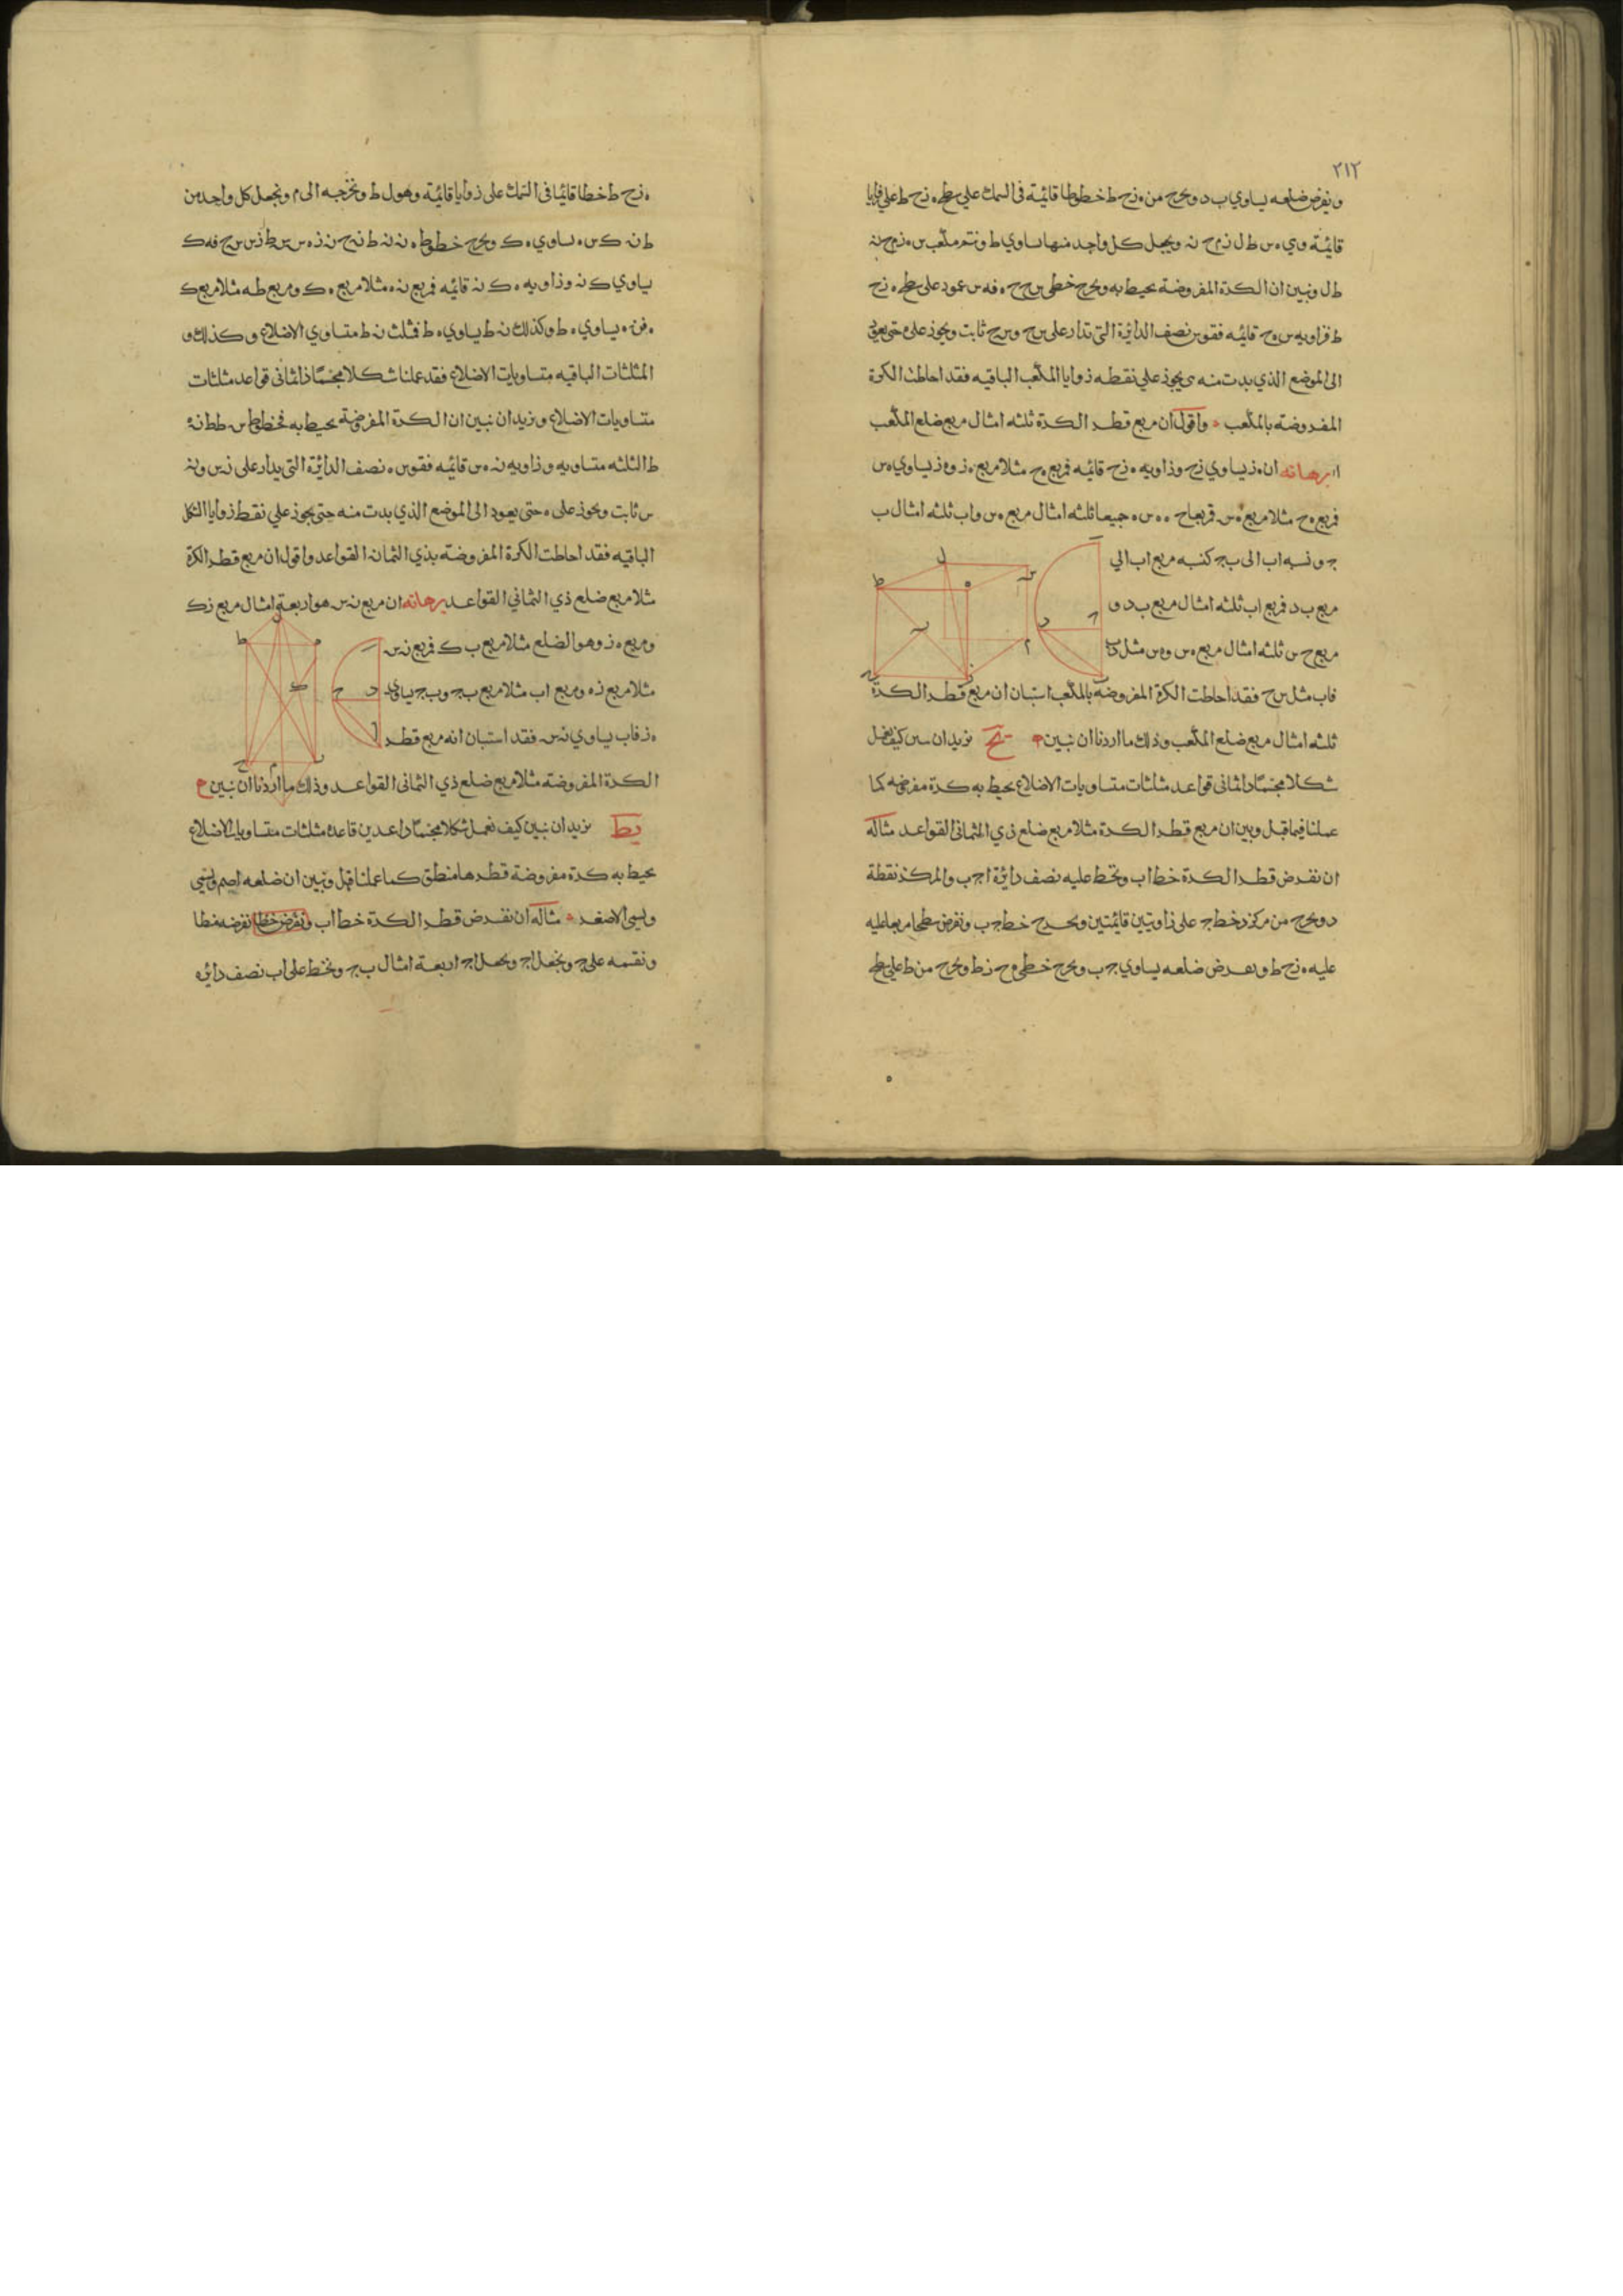 ٢١٢
ونفرض ضلعه يساوي ب د ونخرج من ه ز ح ط خطوطا قائمة في السمك علي سطح ه ز ح ط علي زوايا
قائمة وي ه س ط ل ز م ح نه ونجعل كل واحد منها يساوي ط ونتمم مكعب س ه ز م ح نه
ط ل ونبين ان الكرة المفروضة يحيط به ونخرج خطي س ح ح ه فه س عمود على سطح ه ز ح
ط فزاويه س ه ح قائمه فقوس نصف الدائرة التي تدار على س ح وس ح ثابت ويجوز على ه حتى يعود
الى الموضع الذي بدت منه يجوز علي نقطه زوايا المكعب الباقيه فقد احاطت الكرة
المفروضة بالمكعب واقول ان مربع قطر الكرة ثلثه امثال مربع ضلع المكعب
برهانه ان ه ز يساوي ز ح وزاويه ه ز ح قائمه فمربع ه ح مثلا مربع ه ز وه ز يساوي ه س
فمربع ه ح مثلا مربع ه س فمربعا ح ه ه س جميعا ثلثه امثال مربع ه س واب ثلثه امثال ب
ج ونسبه اب الى ب ج كنسبه مربع اب الي
مربع ب د فمربع اب ثلثه امثال مربع ب د و
مربع ح س ثلثه امثال مربع ه س وه س مثل
فاب مثل س ح فقد احاطت الكرة المفروضة بالمكعب استبان ان مربع قطر الكرة
ثلثه امثال مربع ضلع المكعب وذلك ما اردنا ان نبين يح نريد ان نبين كيف نعمل
شكلا مجسما ذا ثماني قواعد مثلثات متساويات الاضلاع يحيط به كرة مفروضه كما
عملنا فيما قبل ونبين ان مربع قطر الكرة مثلا مربع ضلع ذي الثماني القواعد مثاله
ان نفرض قطر الكرة خط اب ونخط عليه نصف دائرة ا ج ب والمركز نقطة
د ونخرج من مركز د خط ج على زاويتين قائمتين ونخرج خط ج ب ونفرض سطحا مربعا عليه
عليه ه ز ح ط ونفرض ضلعه يساوي ج ب ونخرج خطي ه ح ز ط ونخرج من ط علي سطح
ه ز ح ط خطا قائما في السمك على زوايا قائمة وهو ل ط ونخرجه الى م ونجعل كل واحد من
ط نه ك س ه يساوي ه ك ونخرج خطوط ه نه نه ط نه ح نه ز ه س س ط ز س س ح فه ك
يساوي ك نه وزاويه ه ك نه قائمه فمربع نه ه مثلا مربع ه ك ومربع ط ه مثلا مربع ك
ه فنه ه يساوي ه ط وكذلك نه ط يساوي ه ط فمثلث نه ط متساوي الاضلاع وكذلك و
المثلثات الباقيه متساويات الاضلاع فقد عملنا شكلا مجسما ذا ثماني قواعد مثلثات
متساويات الاضلاع ونريد ان نبين ان الكرة المفروضة يحيط به فخطوط س ط ط نه
ط الثلثه متساويه وزاويه نه ه س قائمه فقوس ه نصف الدائرة التي يدار على نه س ونه
س ثابت ويجوز على ه حتى يعود الى الموضع الذي بدت منه حتى يجوز علي نقط زوايا الشكل
الباقيه فقد احاطت الكرة المفروضة بذي الثمان القواعد واقول ان مربع قطر الكرة
مثلا مربع ضلع ذي الثماني القواعد برهانه ان مربع نه س هو اربعة امثال مربع نه ك
ومربع ه ز وهو الضلع مثلا مربع ب ك فمربع نه س
مثلا مربع ز ه ومربع اب مثلا مربع ب ج وب ج يساوي
ه ز فاب يساوي نه س فقد استبان انه مربع قطر
الكرة المفروضة مثلا مربع ضلع ذي الثماني القواعد وذلك ما اردنا ان نبين
يط نريد ان نبين كيف نعمل شكلا مجسما ذا عشرين قاعدة مثلثات متساويات الاضلاع
يحيط به كرة مفروضة قطرها منطق كما عملنا قبل ونبين ان ضلعه اصم ويسمى
ويسمى الاصغر مثاله ان نفرض قطر الكرة خط اب ونفرض خطا نفرضه منطقا
ونقسمه على ج ونجعل ا ج ونجعل ا ج اربعة امثال ب ج ونخط على اب نصف دائره